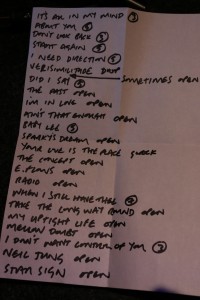 IT'S ALL IN MY MIND ③
ABOUT YOU ⑤
DON'T LOOK BACK ⑤
START AGAIN ④
I NEED DIRECTION ⑤
VERISIMILITUDE DROP
DID I SAY SOMETIMES OPEN
THE PAST OPEN
I'M IN LOVE OPEN
AIN'T THAT ENOUGH OPEN
BABY LEE ③
SPARKY'S DREAM OPEN
YOUR LOVE IS THE PLACE
THE CONCEPT OPEN
E. PLANS OPEN
RADIO OPEN
WHEN I STILL HAVE THEE ②
TAKE THE LONG WAY ROUND OPEN
MY UPTIGHT LIFE OPEN
MELLOW DOUBT OPEN
I DON'T WANT CONTROL OF YOU ②
NEIL JUNG OPEN
STAR SIGN OPEN